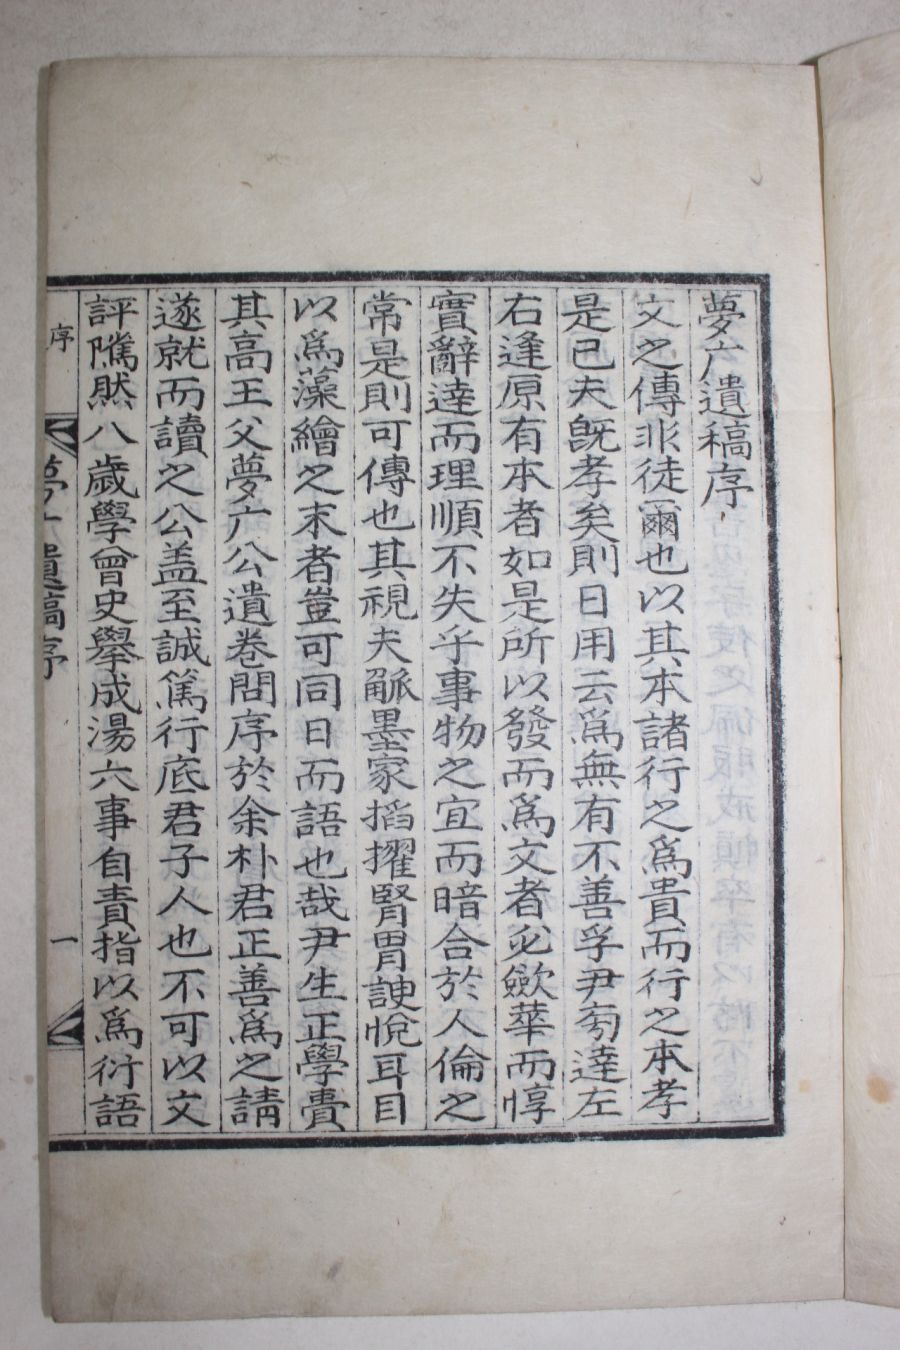 夢广遺稿序
文之傳非徒爾也以其本諸行之爲貴而行之本孝
是已夫旣孝矣則日用云爲無有不善孚尹旁達左
右逢原有本者如是所以發而爲文者必歛華而惇
實辭達而理順不失乎事物之宜而暗合於人倫之
常是則可傳也其視夫觚墨家搯擢腎胃諛悅耳目
以爲藻繪之末者豈可同日而語也哉尹生正學賫
其高王父夢广公遺卷問序於余朴君正善爲之請
遂就而讀之公盖至誠篤行底君子人也不可以文
評隲然八歲學曾史擧成湯六事自責指以爲衍語
序
夢广遺稿序
一